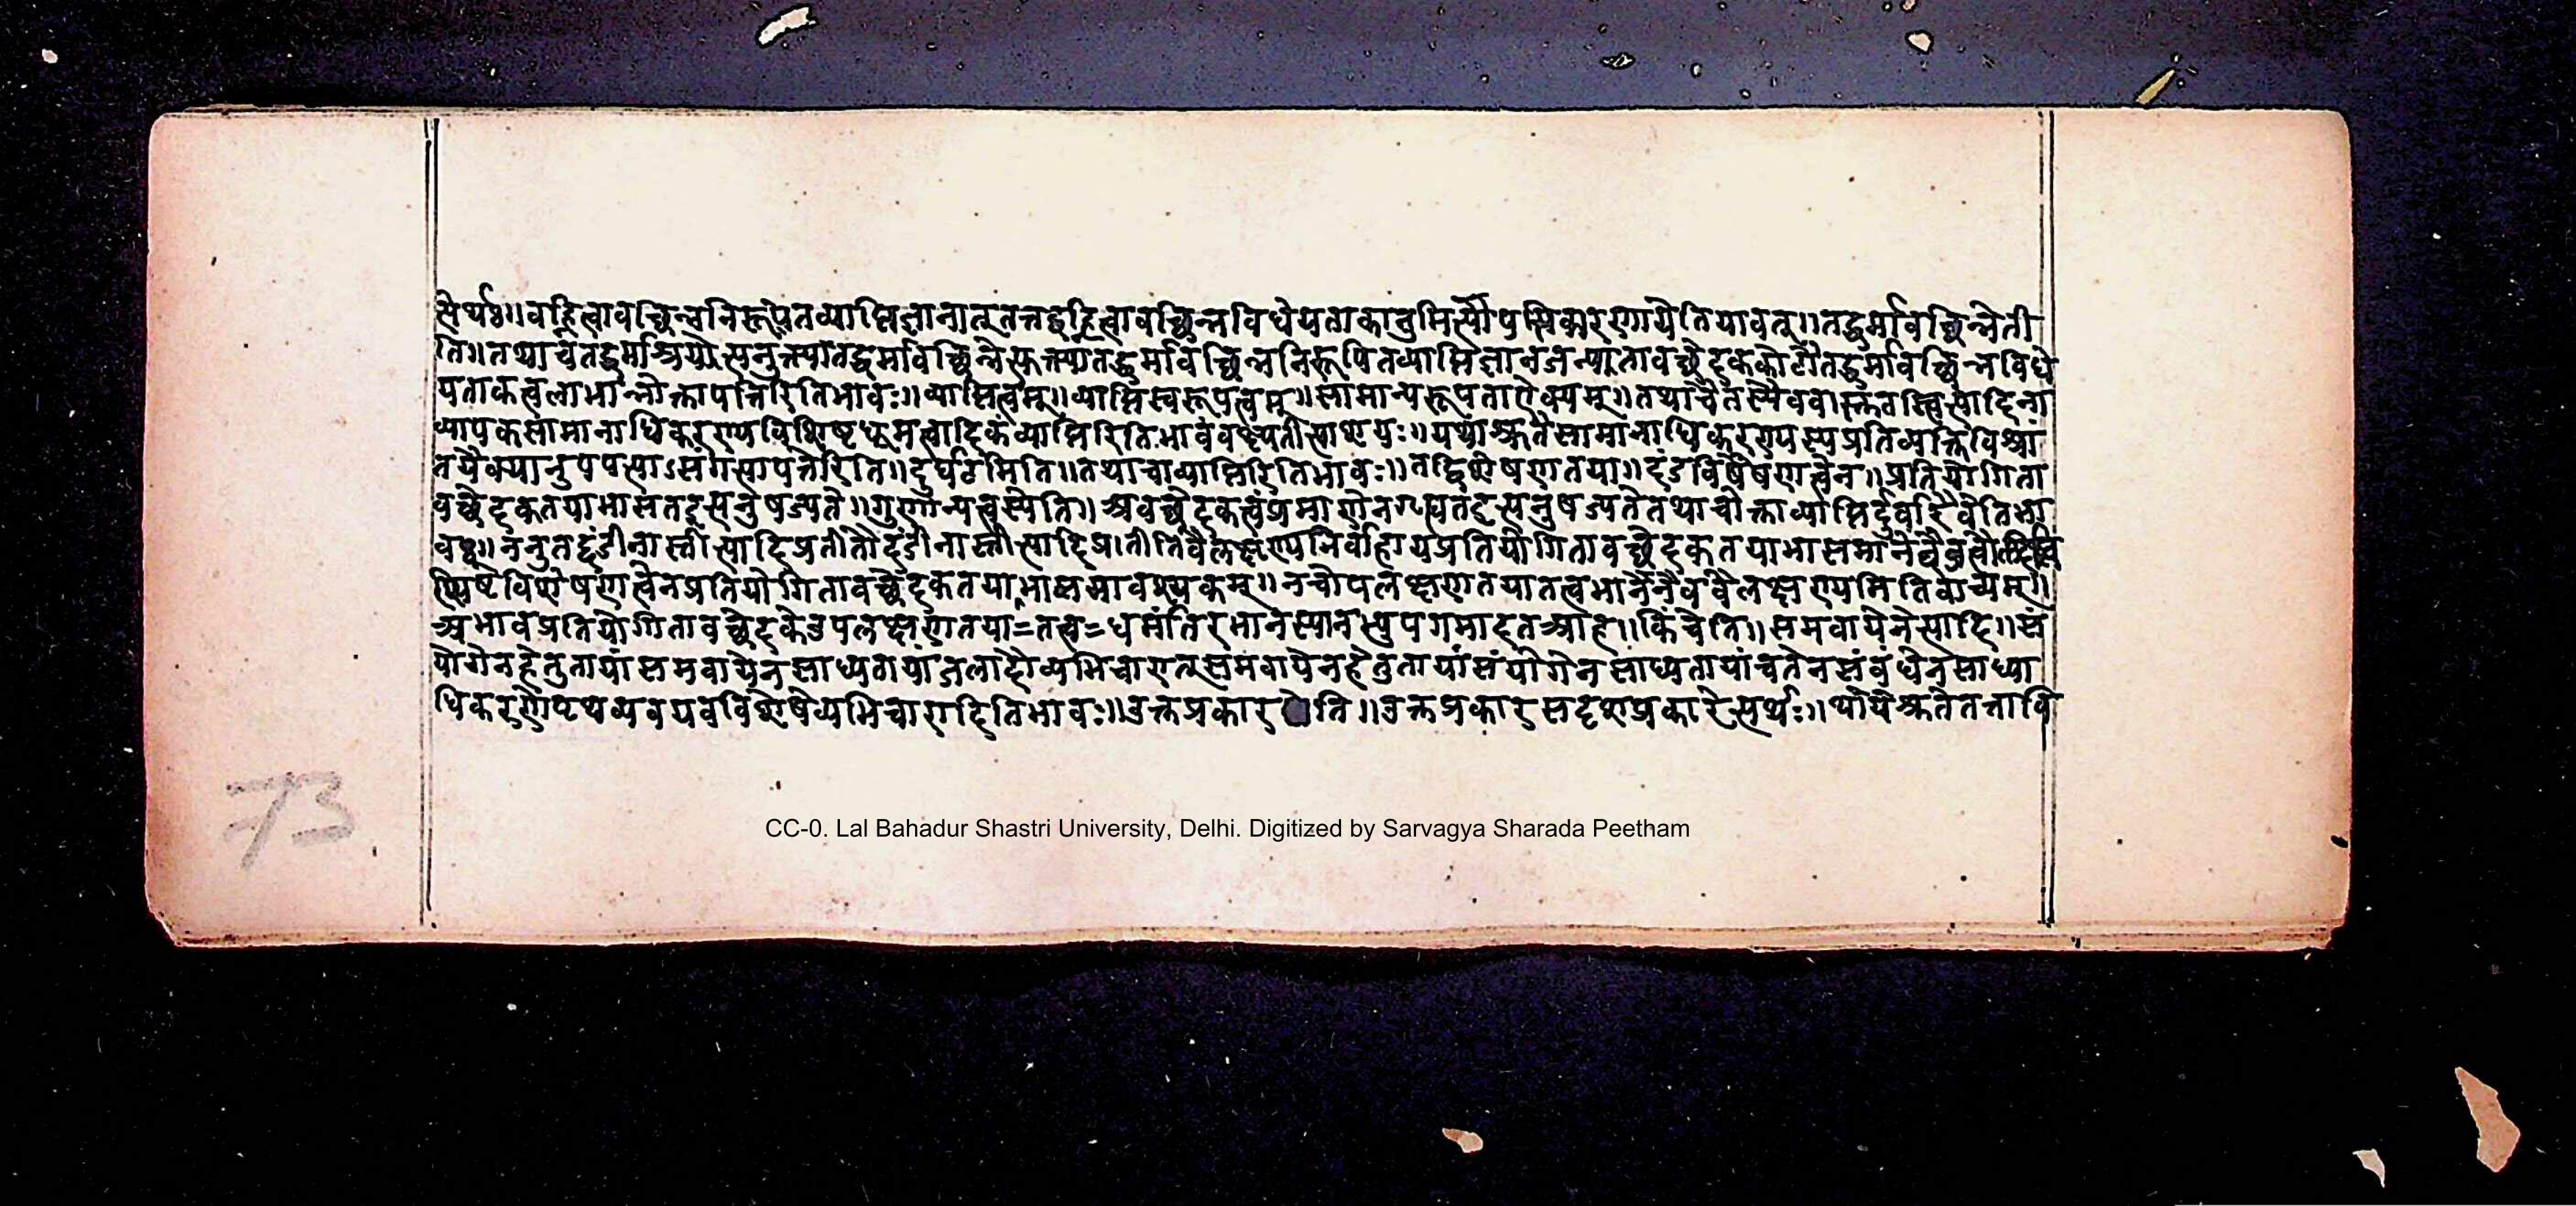 त्यर्थः॥वह्नित्वावच्छिन्ननिरूपितव्याप्तिज्ञानात् तत्तद्वह्नित्वावच्छिन्नविधेयताकानुमित्यौपयिकारणायेतियावत्॥तद्धर्मावच्छिन्नेती
ति॥तथाचतद्धर्माश्रययोत्यनुक्त्यातद्धर्मावच्छिन्नेत्युक्त्यातद्धर्मावच्छिन्ननिरूपितव्याप्तिज्ञानजन्यतावच्छेदककोटौतद्धर्मावच्छिन्नविधे
यताकत्वलाभान्नोक्तापत्तिरितिभावः॥व्याप्तित्वम्॥व्याप्तिस्वरूपत्वम्॥सामान्यरूपताऐक्यम्॥तथाचैतस्यैववास्तवस्त्वित्यादिना
व्यापकसामानाधिकरण्यविशिष्टधूमत्वादिकंव्याप्तिरितिभावंवक्ष्यतीत्याशयः॥यथाश्रुतेसामानाधिकरण्यस्यप्रतिव्यक्तिविश्रां
तयैक्यानुपपत्याऽसंगत्यापत्तेरिति॥दुर्घटमिति॥तथाचाव्याप्तिरितिभावः॥तद्विशेषणतया॥दंडविशेषणत्वेन॥प्रतियोगिता
वच्छेदकतयाभासतइत्यनुषज्यते॥गुणान्यत्वस्येति॥अवच्छेदकत्वंप्रमाणेनगृह्यतइत्यनुषज्यतेतथाचोक्ताव्याप्तिर्दुर्वारैवेतिभा
वः॥ननुतद्दंडीनास्तीत्यादिप्रतीतौदंडीनास्तीत्यादिप्रतीतिवैलक्षण्यनिर्वाहायप्रतियोगितावच्छेदकतयाभासमाने
शिष्टविशेषणत्वेनप्रतियोगितावच्छेदकतयाभासमावश्यकम्॥नचोपलक्षणतयातत्वभानेनैववैलक्षण्यमितिवाच्यम्॥
अभावप्रतियोगितावच्छेदकेउपलक्षणतया=तत्व=धर्मांतरभानस्यानभ्युपगमादतआह॥किंचेति॥समवायेनेत्यादि॥सं
योगेनहेतुतायांसमवायेनसाध्यतायांजलादौव्यभिचारात्समवायेनहेतुतायांसंयोगेनसाध्यतायांचतेनसंबंधेनसाध्या
धिकरणेपृथव्यवयवविशेषेव्यभिचारादितिभावः॥उक्तप्रकारेति॥उक्तप्रकारसदृशप्रकारेत्यर्थः॥यथाश्रुतेतत्तावि
73
CC-0. Lal Bahadur Shastri University, Delhi. Digitized by Sarvagya Sharada Peetham